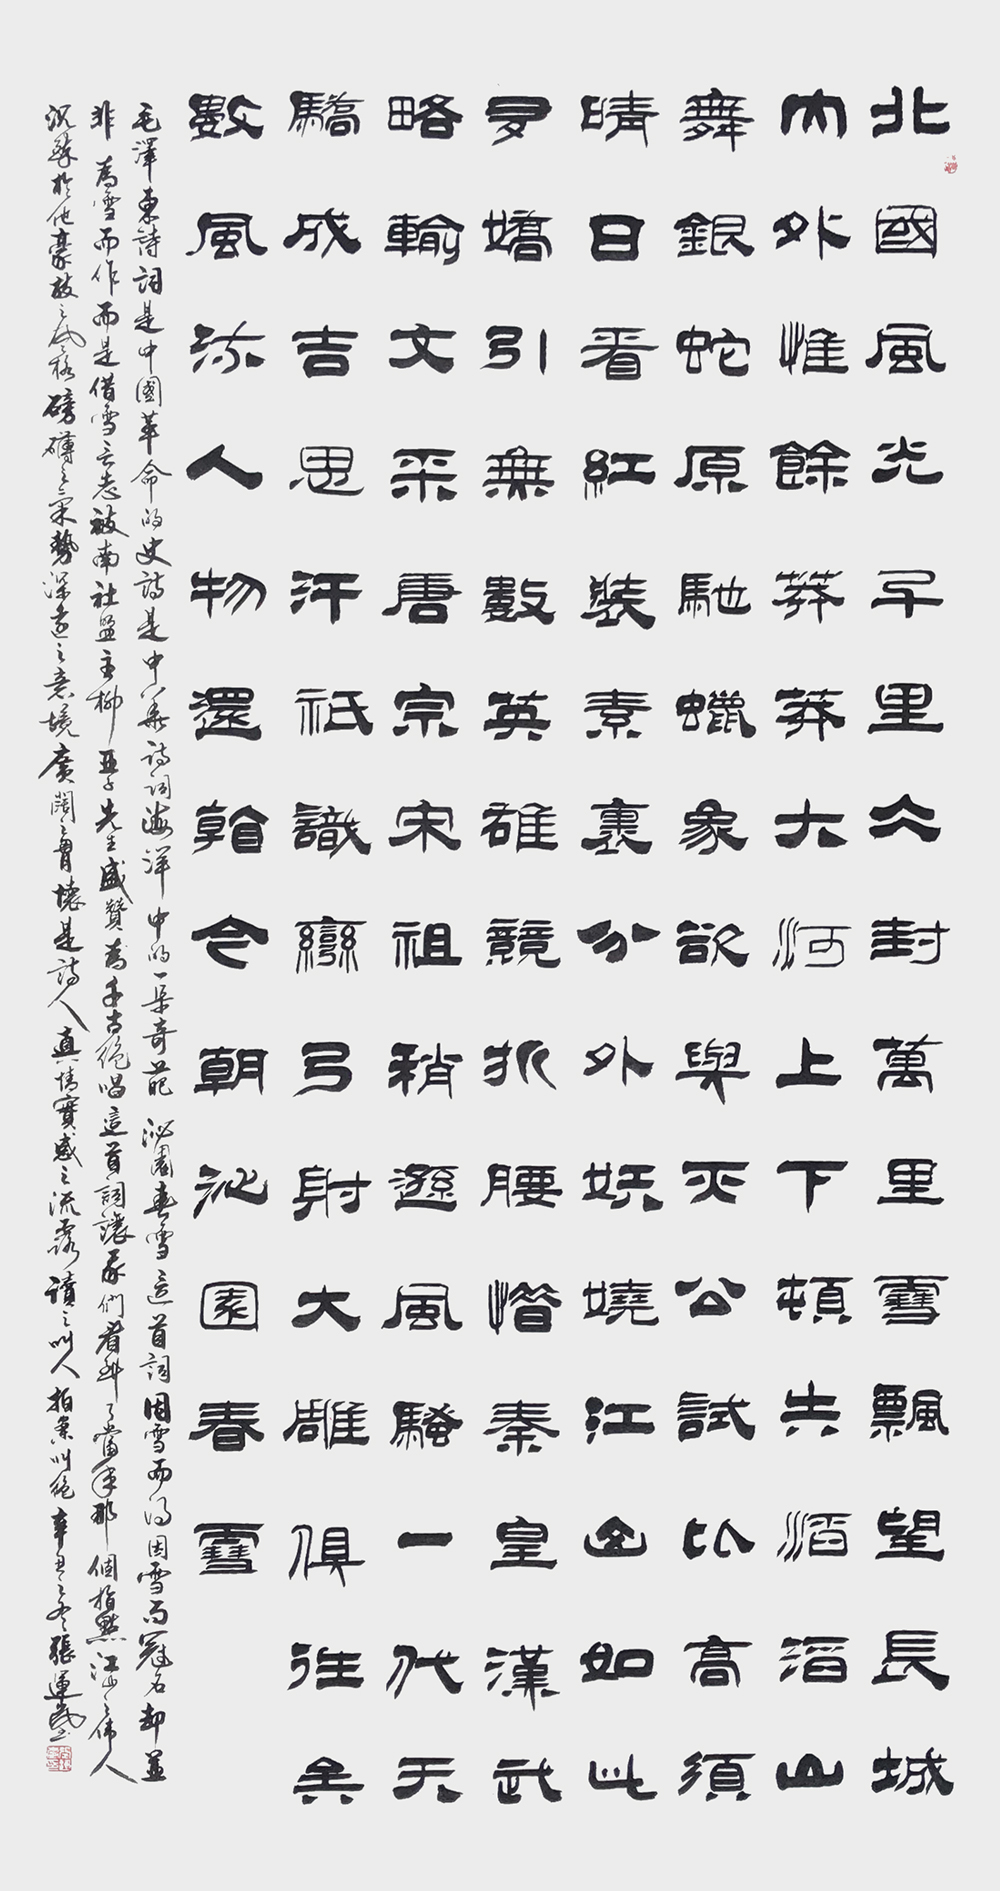 北國風光千里仌封萬里雪飄望長城
內外惟餘莽莽大河上下頓失滔滔山
舞銀蛇原馳蠟象欲與天公試比高須
晴日看紅裝素裹分外妖嬈江山如此
多嬌引無數英雄競折腰惜秦皇漢武
略輸文采唐宗宋祖稍遜風騷一代天
驕成吉思汗祇識彎弓射大雕俱往矣
數風流人物還看今朝沁園春雪
毛澤東詩詞是中國革命的史詩是中華詩詞海洋中的一朵奇葩沁園春雪這首詞因雪而得因雪而冠名却並
非為雪而作而是借雪言志被南社盟主柳亞子先生盛贊為千古絕唱這首詞讓我們看到了當年那個指點江山之偉人
沉醉於他豪放之風格磅礴之氣勢深遠之意境廣闊之胸懷是詩人真情實感之流露讀之叫人拍案叫絕辛丑之冬張運